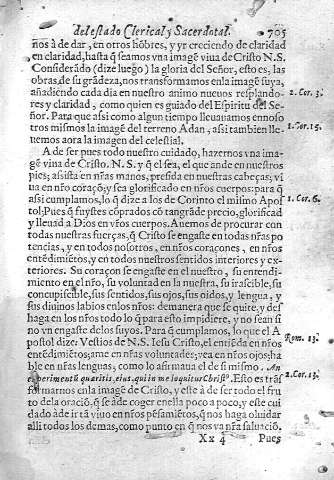 del estado Clerical, y Sacerdotal. 705
nos à de dar, en otros hõbres, y yr creciendo de claridad
en claridad, hasta q̃ seamos vna imagẽ viua de Cristo N.S.
Considerãdo (dize luego) la gloria del Señor, esto es, las
obras de su grãdeza, nos transformamos en la imagẽ suya,
añadiendo cada dia en nuestro animo nueuos resplando-
res y claridad, como quien es guiado del Espiritu del Se- 2. Cor. 3.
ñor. Para que asi como algun tiempo lleuamos en noso
tros mismos la imagẽ del terreno Adan, asi tambien lle- 1. Cor. 15.
uemos aora la imagen del celestial.
A de ser pues todo nuestro cuidado, hazernos vna ima-
gẽ viua de Cristo. N. S. y q̃ el sea, el que ande en nuestros
pies; asista en nr̃as manos, presida en nuestras cabeças; vi
ua en nr̃o coraçõ; y sea glorificado en nr̃os cuerpos: para q̃
asi cumplamos, lo q̃ dize a los de Corinto el mismo Apos 1. Cor. 6.
tol; Pues q̃ fuystes cõprados cõ tan grãde precio, glorificad
y lleuad a Dios en vr̃os cuerpos. Auemos de procurar con
todas nuestras fuerças, q̃ Cristo se engaste en todas nr̃as po
tencias, y en todos nosotros, en nr̃os coraçones, en nr̃os
entẽdimiẽtos, y en todos nuestros sentidos interiores y ex-
teriores. Su coraçon se engaste en el nuestro, su entendi-
miento en el nr̃o, su voluntad en la nuestra, su irascible, su
concupiscible, sus sentidos, sus ojos, sus oidos, y lengua, y
sus diuinos labios en los nr̃os: demanera que se quite, y des
haga en los nr̃os todo lo q̃ para esto impidiere, y no sean si
no vn engaste de los suyos. Para q̃ cumplamos, lo que el A
postol dize: Vestios de N.S. Iesu Cristo, el entiẽda en nr̃os Rom. 13.
entẽdimiẽtos; ame en nr̃as voluntades; vea en nr̃os ojos; ha
ble en nr̃as lenguas, como lo afirmaua el de si mismo. An
experimentũ quæritis, eius, qui in me loquitur Christꝰ. Esto es trãs 2. Cor. 13.
formarnos en la imagẽ de Cristo, y este à de ser todo el fru
to dela oraciõ, q̃ se à de coger en ella poco a poco, y este cui
dado à de ir tã viuo en nr̃os pẽsamiẽtos, q̃ nos haga oluidar
alli todos los demas, como punto en q̃ nos va nr̃a saluaciõ.
Xx 4 Pues